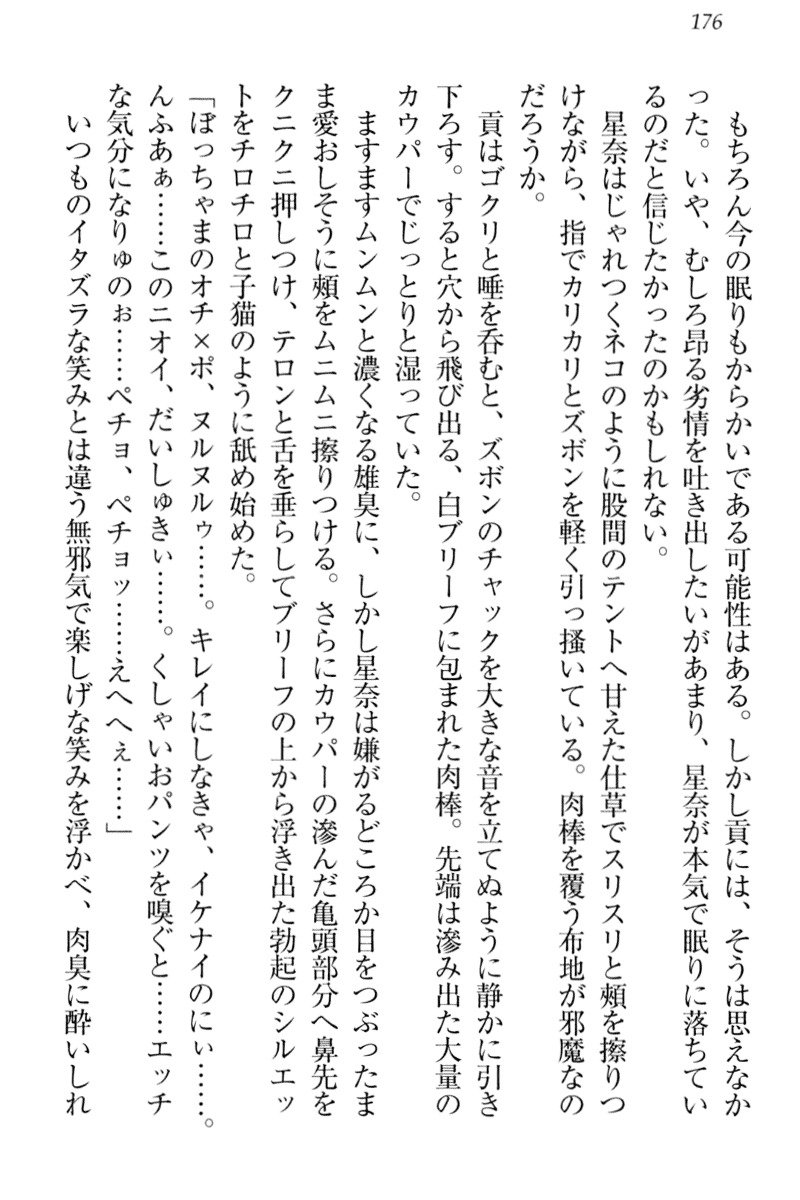 176
もちろん今の眠りもからかいである可能性はある。しかし貢には、そうは思えなか
った。いや、むしろ昂る劣情を吐き出したいがあまり、星奈が本気で眠りに落ちてい
るのだと信じたかったのかもしれない。
星奈はじゃれつくネコのように股間のテントへ甘えた仕草でスリスリと頬を擦りつ
けながら、指でカリカリとズボンを軽く引っ掻いている。肉棒を覆う布地が邪魔なの
だろうか。
貢はゴクリと唾を呑むと、ズボンのチャックを大きな音を立てぬように静かに引き
下ろす。すると穴から飛び出る、白ブリーフに包まれた肉棒。先端は滲み出た大量の
カウパーでじっとりと湿っていた。
ますますムンムンと濃くなる雄臭に、しかし星奈は嫌がるどころか目をつぶったま
ま愛おしそうに頬をムニムニ擦りつける。さらにカウパーの滲んだ亀頭部分へ鼻先を
クニクニ押しつけ、テロンと舌を垂らしてブリーフの上から浮き出た勃起のシルエッ
トをチロチロと子猫のように舐め始めた。
「ぼっちゃまのオチ×ポ、ヌルヌルゥ……。キレイにしなきゃ、イケナイのにぃ……。
んふあぁ……このニオイ、だいしゅきぃ……。くしゃいおパンツを嗅ぐと……エッチ
な気分になりゅのぉ……ペチョ、ペチョッ……えへへぇ……」
いつものイタズラな笑みとは違う無邪気で楽しげな笑みを浮かべ、肉臭に酔いしれ